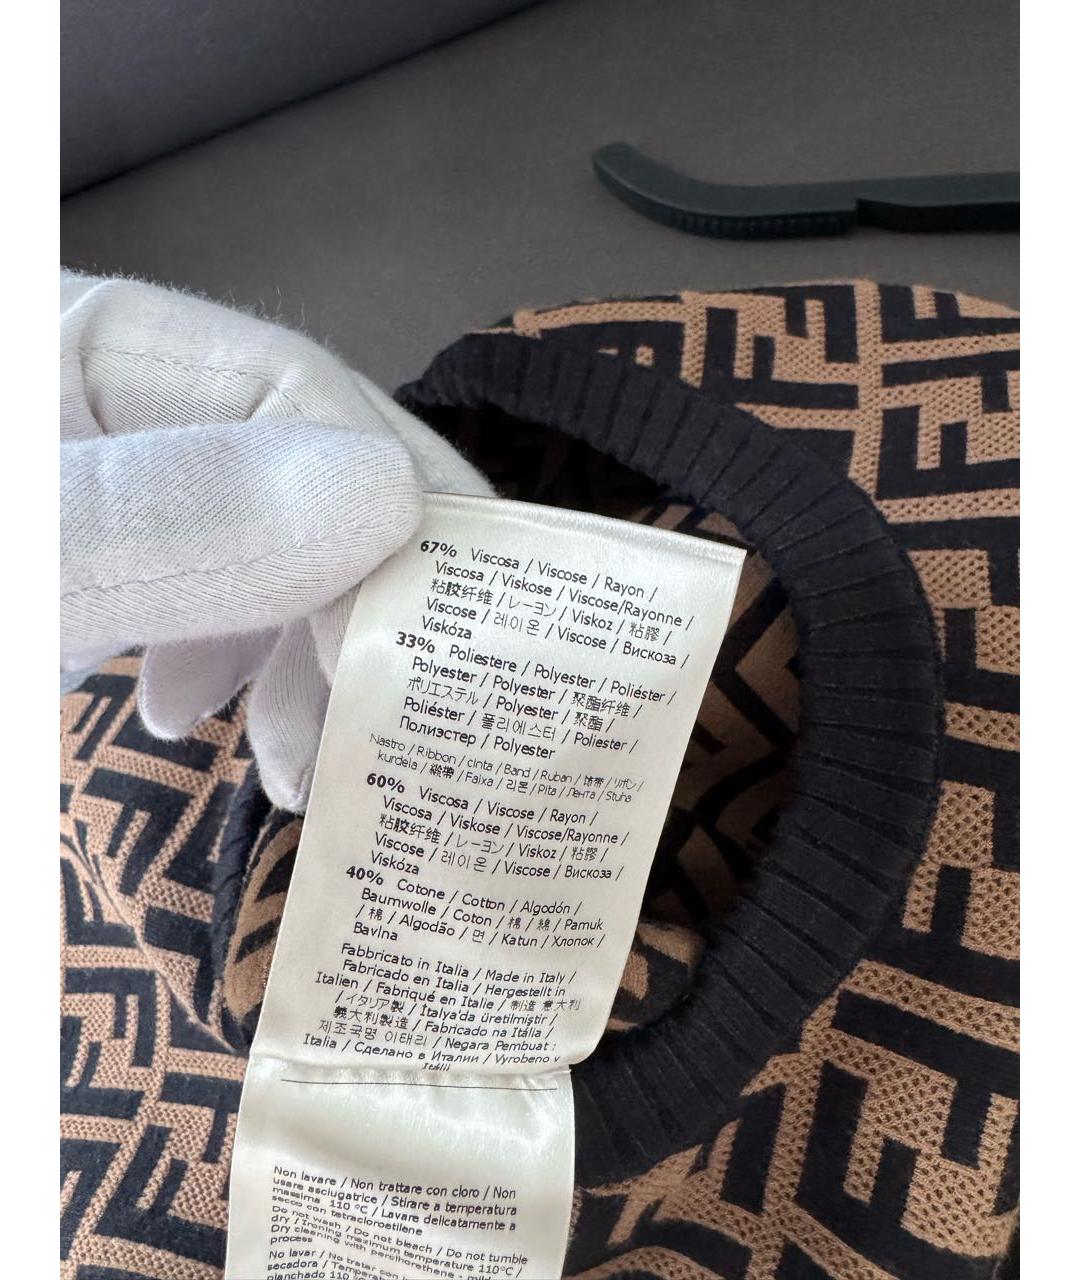 67% Viscosa / Viscose / Rayon /
Viscosa / Viskose / Viscose/Rayonne /
粘胶纤维 / レーヨン / Viskoz / 粘膠 /
Viscose / 레이온 / Viscose / Вискоза /
Viskóza
33% Poliestere / Polyester / Poliéster /
Polyester / Polyester / 聚酯纤维 /
ポリエステル / Polyester / 聚酯 /
Poliéster / 폴리에스터 / Poliester /
Полиэстер / Polyester
Nastro / Ribbon / cinta / Band / Ruban / 饰带 / リボン /
kurdela / 緞帶 / Faixa / 리본 / Pita / Лента / Stuha
60% Viscosa / Viscose / Rayon /
Viscosa / Viskose / Viscose/Rayonne /
粘胶纤维 / レーヨン / Viskoz / 粘膠 /
Viscose / 레이온 / Viscose / Вискоза /
Viskóza
40% Cotone / Cotton / Algodón /
Baumwolle / Coton / 棉 / 綿 / Pamuk
/ 棉 / Algodão / 면 / Katun / Хлопок /
Bavlna
Fabbricato in Italia / Made in Italy /
Fabricado en Italia / Hergestellt in
Italien / Fabriqué en Italie / 制造 意大利
/ イタリア製 / Italya'da üretilmiştir /
義大利製造 / Fabricado na Itália /
제조국명 이태리 / Negara Pembuat :
Italia / Сделано в Италии / Vyrobeno v
Itálii
Non lavare / Non trattare con cloro / Non
usare asciugatrice / Stirare a temperatura
massima 110 °C / Lavare delicatamente a
secco con tetracloroetilene
Do not wash / Do not bleach / Do not tumble
dry / Ironing maximum temperature 110°C /
Dry cleaning with perchlorethene - mild
process
No lavar / No tratar con
secadora / Temperatura
planchado 110